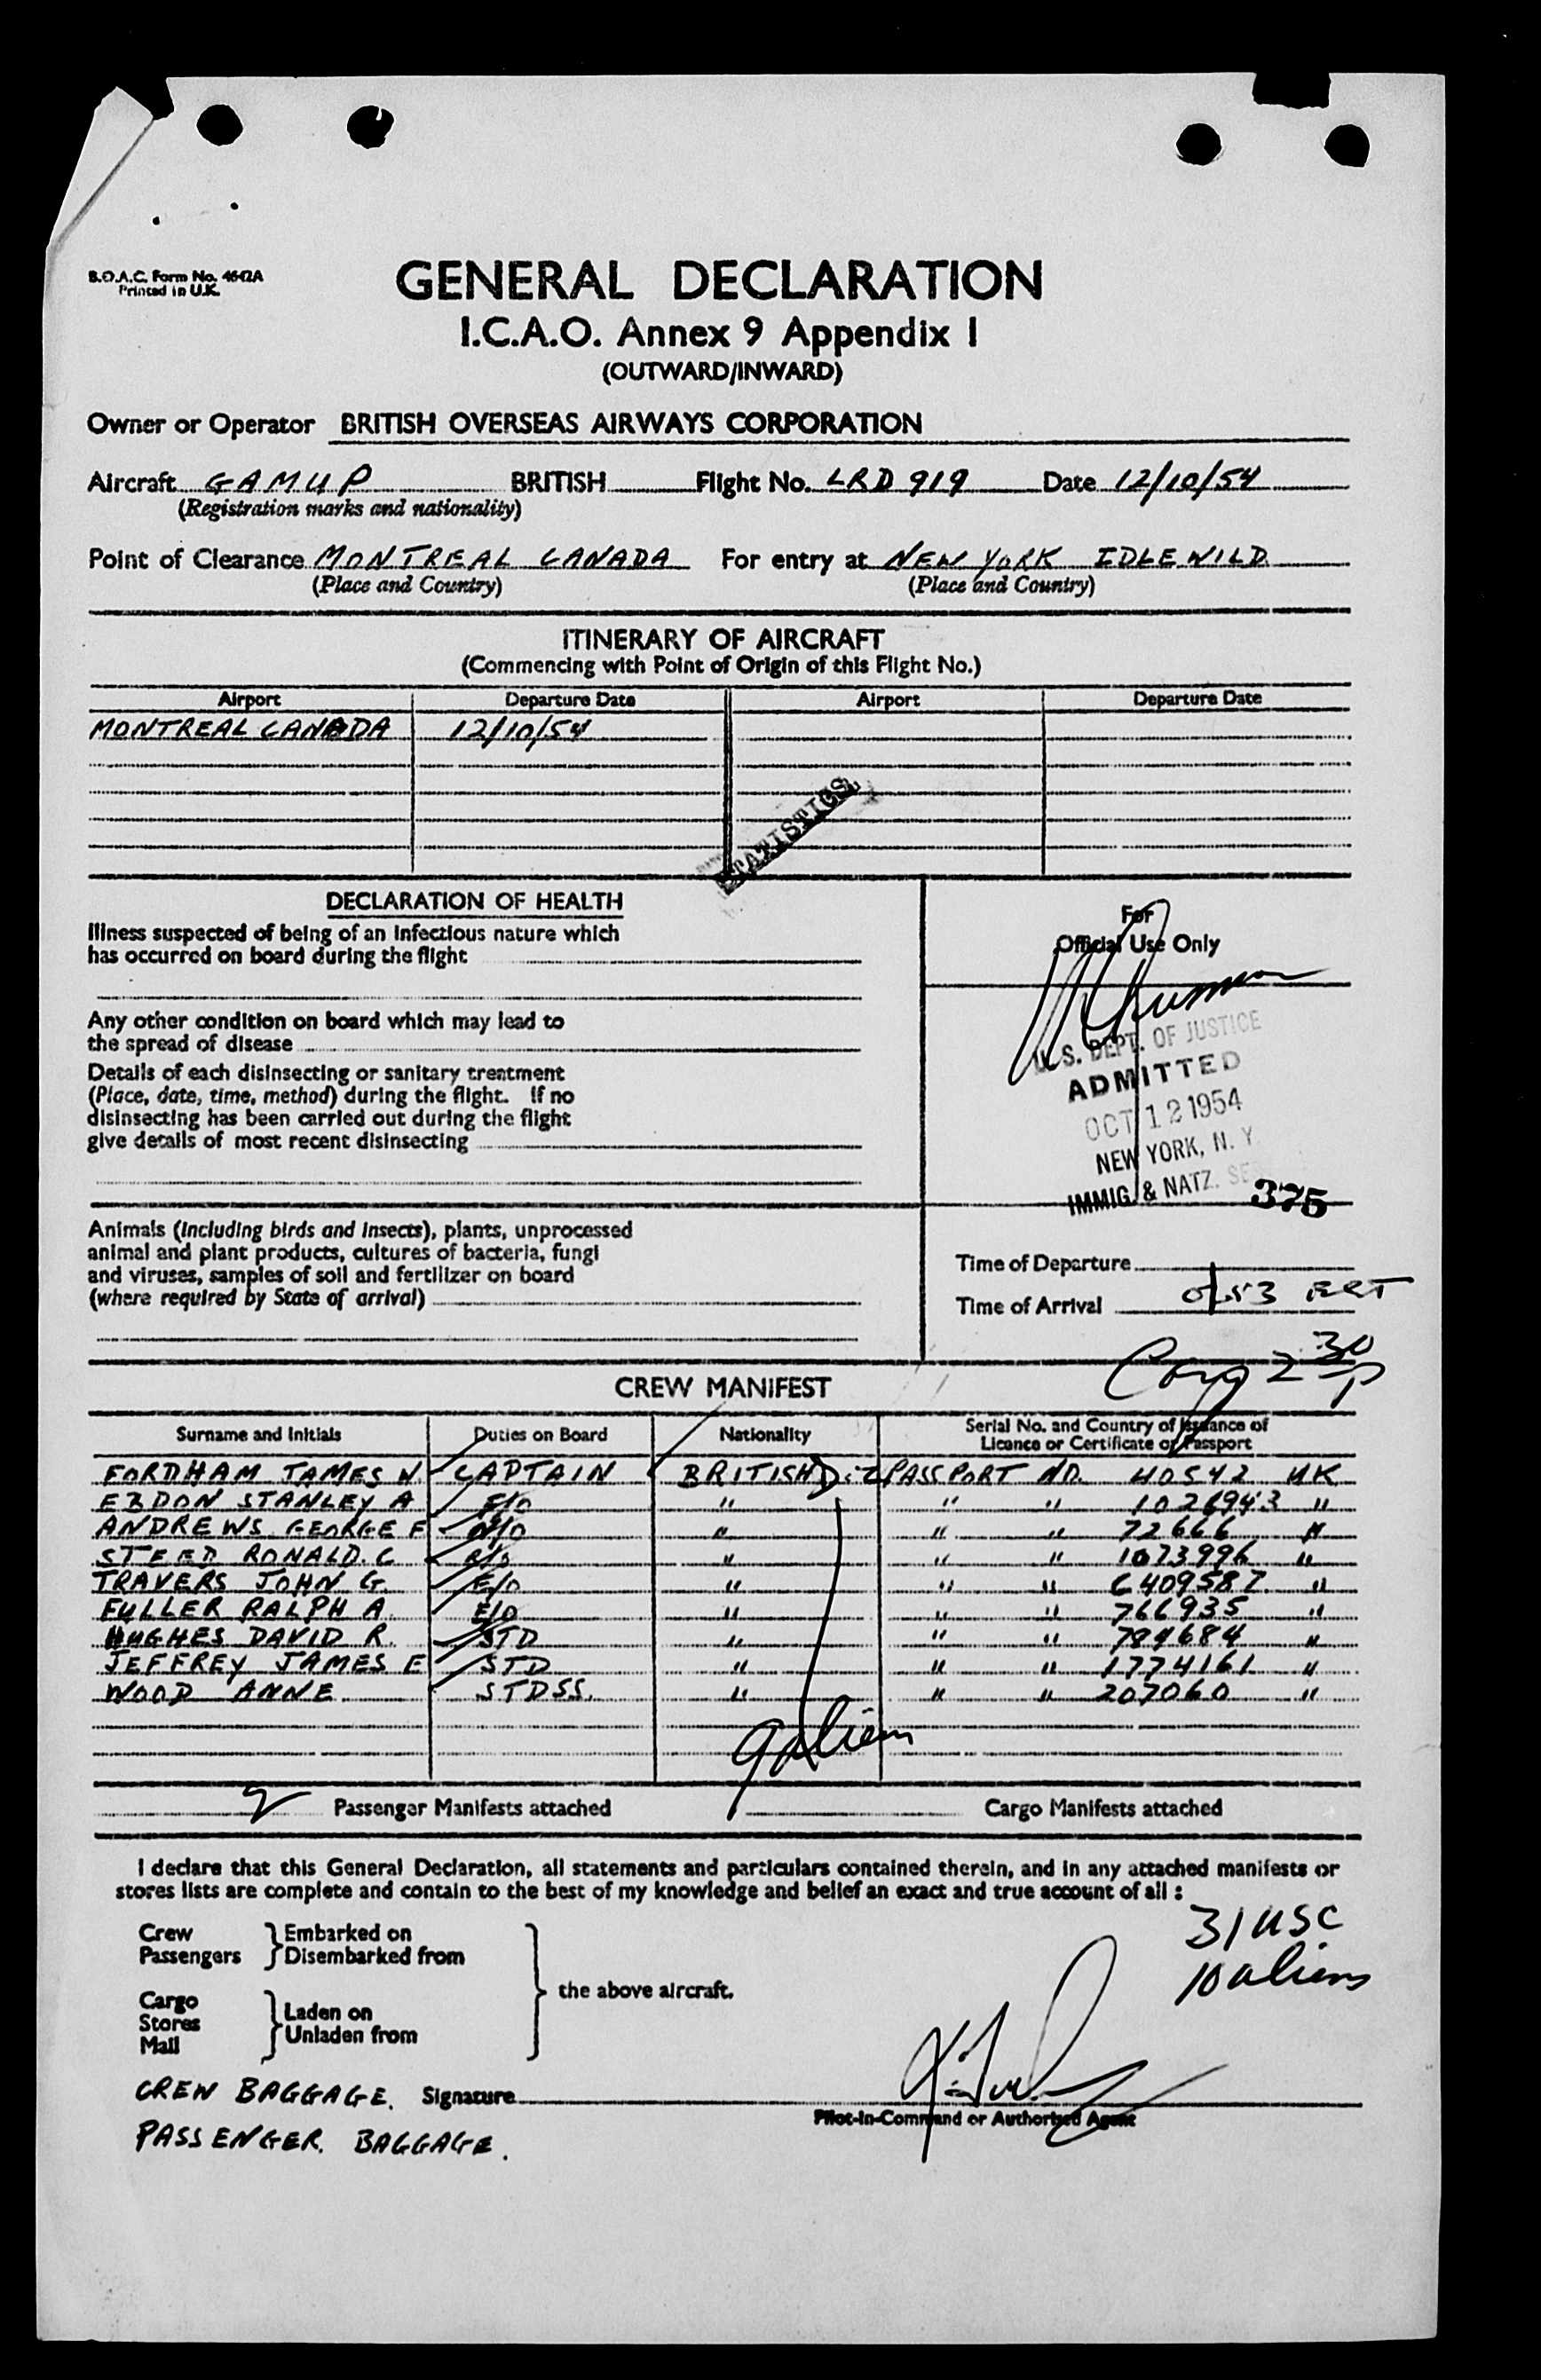 B.O.A.C. Form No. 4642A
Printed in U.K.
GENERAL DECLARATION
I.C.A.O. Annex 9 Appendix I
(OUTWARD/INWARD)
Owner or Operator BRITISH OVERSEAS AIRWAYS CORPORATION
Aircraft GAMUP BRITISH Flight No. LRD 919 Date 12/10/54
(Registration marks and nationality)
Point of Clearance MONTREAL CANADA For entry at NEW YORK IDLEWILD
(Place and Country) (Place and Country)
ITINERARY OF AIRCRAFT
(Commencing with Point of Origin of this Flight No.)
Airport Departure Date Airport Departure Date
MONTREAL CANADA 12/10/54
STATISTICS
DECLARATION OF HEALTH
Illness suspected of being of an infectious nature which
has occurred on board during the flight
Any other condition on board which may lead to
the spread of disease
Details of each disinsecting or sanitary treatment
(Place, date, time, method) during the flight. If no
disinsecting has been carried out during the flight
give details of most recent disinsecting
For
Official Use Only
U.S. DEPT. OF JUSTICE
ADMITTED
OCT 12 1954
NEW YORK, N. Y.
IMMIG. & NATZ.
375
Animals (including birds and insects), plants, unprocessed
animal and plant products, cultures of bacteria, fungi
and viruses, samples of soil and fertilizer on board
(where required by State of arrival)
Time of Departure
Time of Arrival
30
CREW MANIFEST
Surname and Initials Duties on Board Nationality Serial No. and Country of Issuance of
Licence or Certificate or Passport
FORDHAM JAMES W. CAPTAIN BRITISH PASSPORT NO. 40542 UK
EBDON STANLEY A F/O " " " 1026943 "
ANDREWS GEORGE F N/O " " " 72666 "
STEED RONALD. C R/O " " " 1073996 "
TRAVERS JOHN G. E/O " " " 6409587 "
FULLER RALPH A. E/O " " " 766935 "
HUGHES DAVID R. STD " " " 784684 "
JEFFREY JAMES E STD " " " 1774161 "
WOOD ANNE STDSS. " " " 207060 "
9 alien
2 Passenger Manifests attached Cargo Manifests attached
I declare that this General Declaration, all statements and particulars contained therein, and in any attached manifests or
stores lists are complete and contain to the best of my knowledge and belief an exact and true account of all :
Crew Embarked on
Passengers Disembarked from
the above aircraft.
Cargo
Stores Laden on
Mail Unladen from
31 USC
10 aliens
CREW BAGGAGE. Signature
Pilot-in-Command or Authorised Agent
PASSENGER. BAGGAGE.